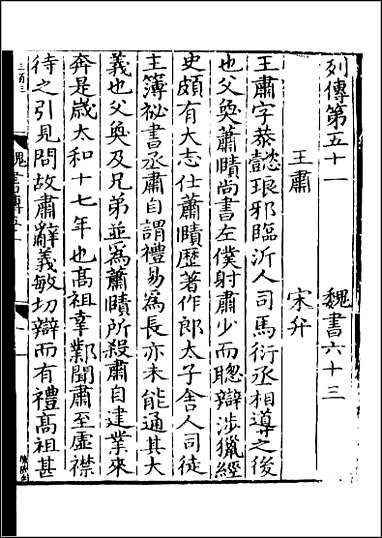 列傳第五十一　魏書六十三
王肅　宋弁
王肅字恭懿琅邪臨沂人司馬衍丞相導之後
也父奐蕭賾尚書左僕射肅少而聰辯涉獵經
史頗有大志仕蕭賾歷著作郎太子舍人司徒
主簿祕書丞肅自謂禮易為長亦未能通其大
義也父奐及兄弟並為蕭賾所殺肅自建業來
奔是歲太和十七年也高祖幸鄴聞肅至虛襟
待之引見問故肅辭義敏切辯而有禮高祖甚
三百三
魏書傳五十一